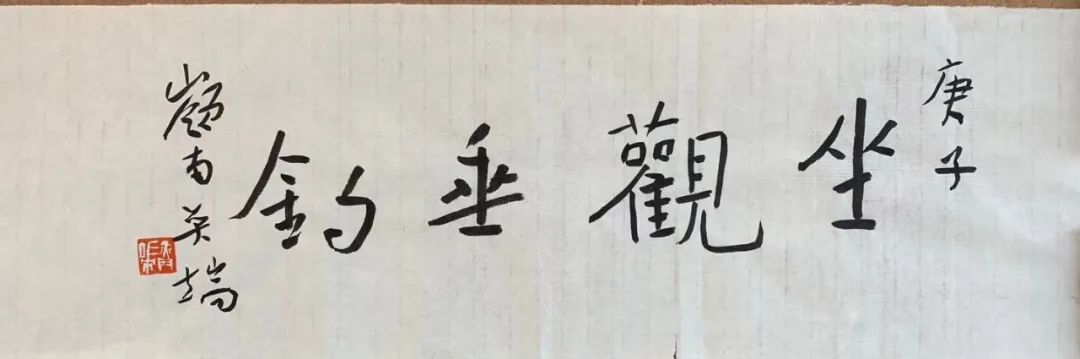 庚子
坐觀垂釣
嶺南英端